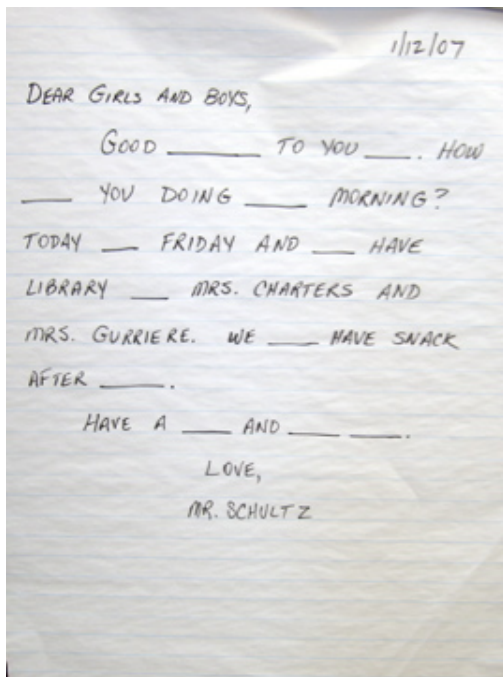 1/12/07
DEAR GIRLS AND BOYS,
GOOD ________ TO YOU ____. HOW
____ YOU DOING ____ MORNING?
TODAY ___ FRIDAY AND ___ HAVE
LIBRARY ___ MRS. CHARTERS AND
MRS. GURRIERE. WE ____ HAVE SNACK
AFTER _____.
HAVE A ____ AND ____ ____.
LOVE,
MR. SCHULTZ